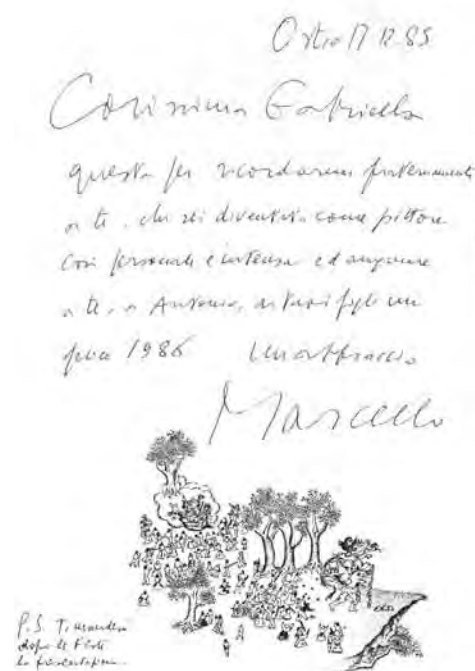 Ostia 17 12 85
Carissima Gabriella
questa per ricordarmi fraternamente
a te, che sei diventata come pittore
così personale e intensa ed augurare
a te, a Antonio, ai tuoi figli un
felice 1986 Un abbraccio
Marcello
P.S. Ti manderò
dopo le Feste
la